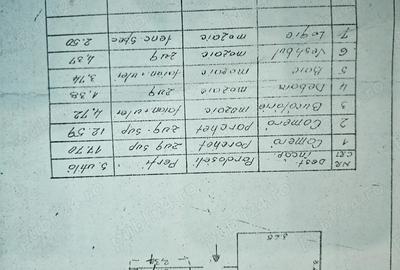 NR. CRT. Dest. incap. Pardoseli Pereti S. utila
1 Camera parchet zug sup 17.70
2 Camera parchet zug. sup 12.59
3 Bucatarie mozaic faian+ulei 4,72
4 Debara mozaic zug 1.38
5 Baie mozaic faian+ulei 3,14
6 Vestibul mozaic zug 4,37
7 Logie mozaic tenc spec 2.50
3.65